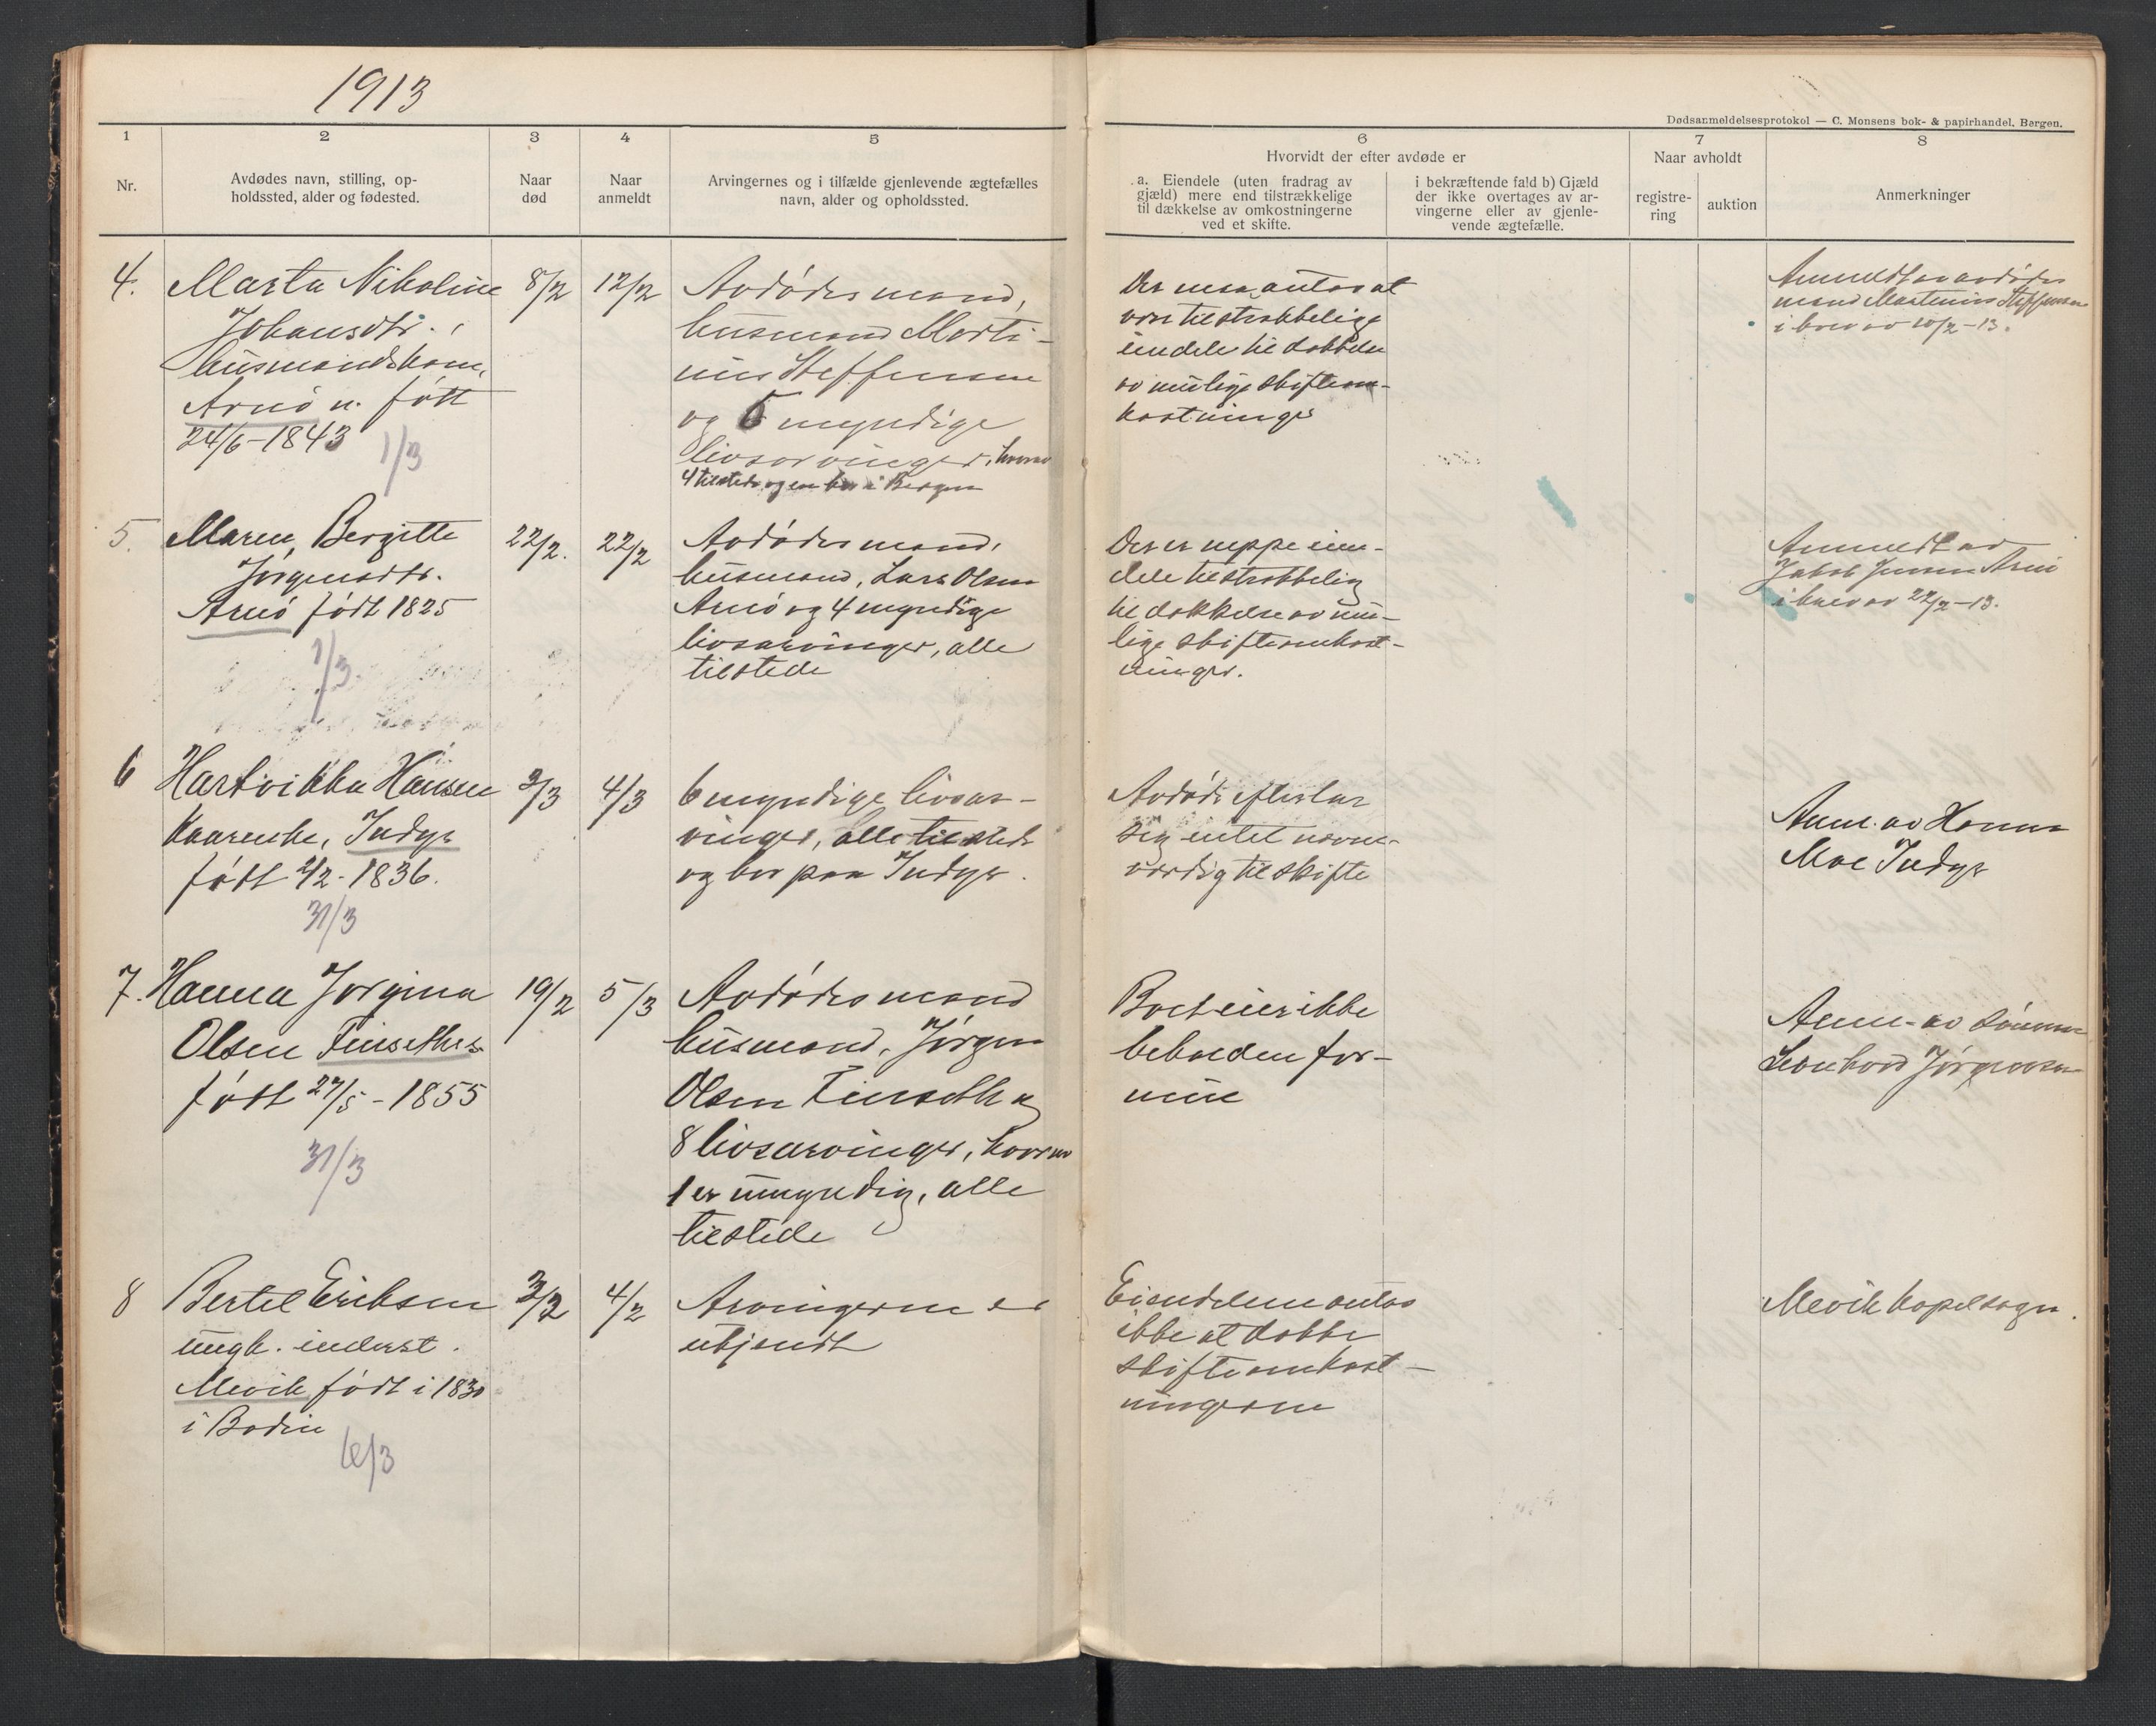 1913
Dødsanmeldelsesprotokol — C. Monsens bok- & papirhandel, Bergen.
1
2
3
4
5
6
7
8
Nr.
Avdødes navn, stilling, op-
holdssted, alder og fødested.
Naar
død
Naar
anmeldt
Arvingernes og i tilfælde gjenlevende ægtefælles
navn, alder og opholdssted.
Hvorvidt der efter avdøde er
a. Eiendele (uten fradrag av
gjæld) mere end tilstrækkelige
til dækkelse av omkostningerne
ved et skifte.
i bekræftende fald b) Gjæld
der ikke overtages av ar-
vingerne eller av gjenle-
vende ægtefælle.
Naar avholdt
registre-
ring
auktion
Anmerkninger
4.
Marta Nikoline
Johansdtr.,
husmandskone,
Arnø n. født
24/6-1843
1/3
8/2
12/2
Avdødes mand,
husmand Marti-
nus Steffensen
og 5 myndige
livsarvinger, hvorav
4 tilstede og en bor i Bergen
Der antas at
være tilstrækkelige
eiendele til dækkelse
av mulige skifteom-
kostninger
Anmeldt av avdødes
mand Martinius Steffensen
i brev av 10/2-13.
5.
Maren Bergitte
Jørgensdtr.
Arnø født 1825
1/3
22/2.
22/2
Avdødes mand,
husmand, Lars Olsen
Arnø og 4 myndige
livsarvinger, alle
tilstede
Der er neppe eien-
dele tilstrækkelig
til dækkelse av mu-
lige skifteomkost-
ninger.
Anmeldt av
Jakob Jensen Arnø
i brev av 22/2-13.
6
Hartvikka Hansen
kaarenke, Indyr
født 2/2-1836.
31/3
2/3
4/3
6 myndige livsar-
vinger, alle tilstede
og bor paa Indyr.
Avdøde efterlar
sig intet nævne-
værdig til skifte
Anm. av Hanna
Moe Indyr
7.
Hanna Jorgina
Olsen Finsethr.
født 27/5-1855
31/3
19/2
5/3
Avdødes mand
husmand, Jørgen
Olsen Finseth og
8 livsarvinger, hvorav
1 er umyndig, alle
tilstede
Boet eier ikke
beholden for-
mue
Anm. av sønnen
Leonhard Jørgensen
8
Bertel Eriksen
ungk. inderst.
Mevik født i 1830
i Bodin
6/3
3/2
4/2
Arvingerne er
ukjendt
Eiendelene antas
ikke at dække
skifteomkost-
ningerne
Mevik kapelsogn.